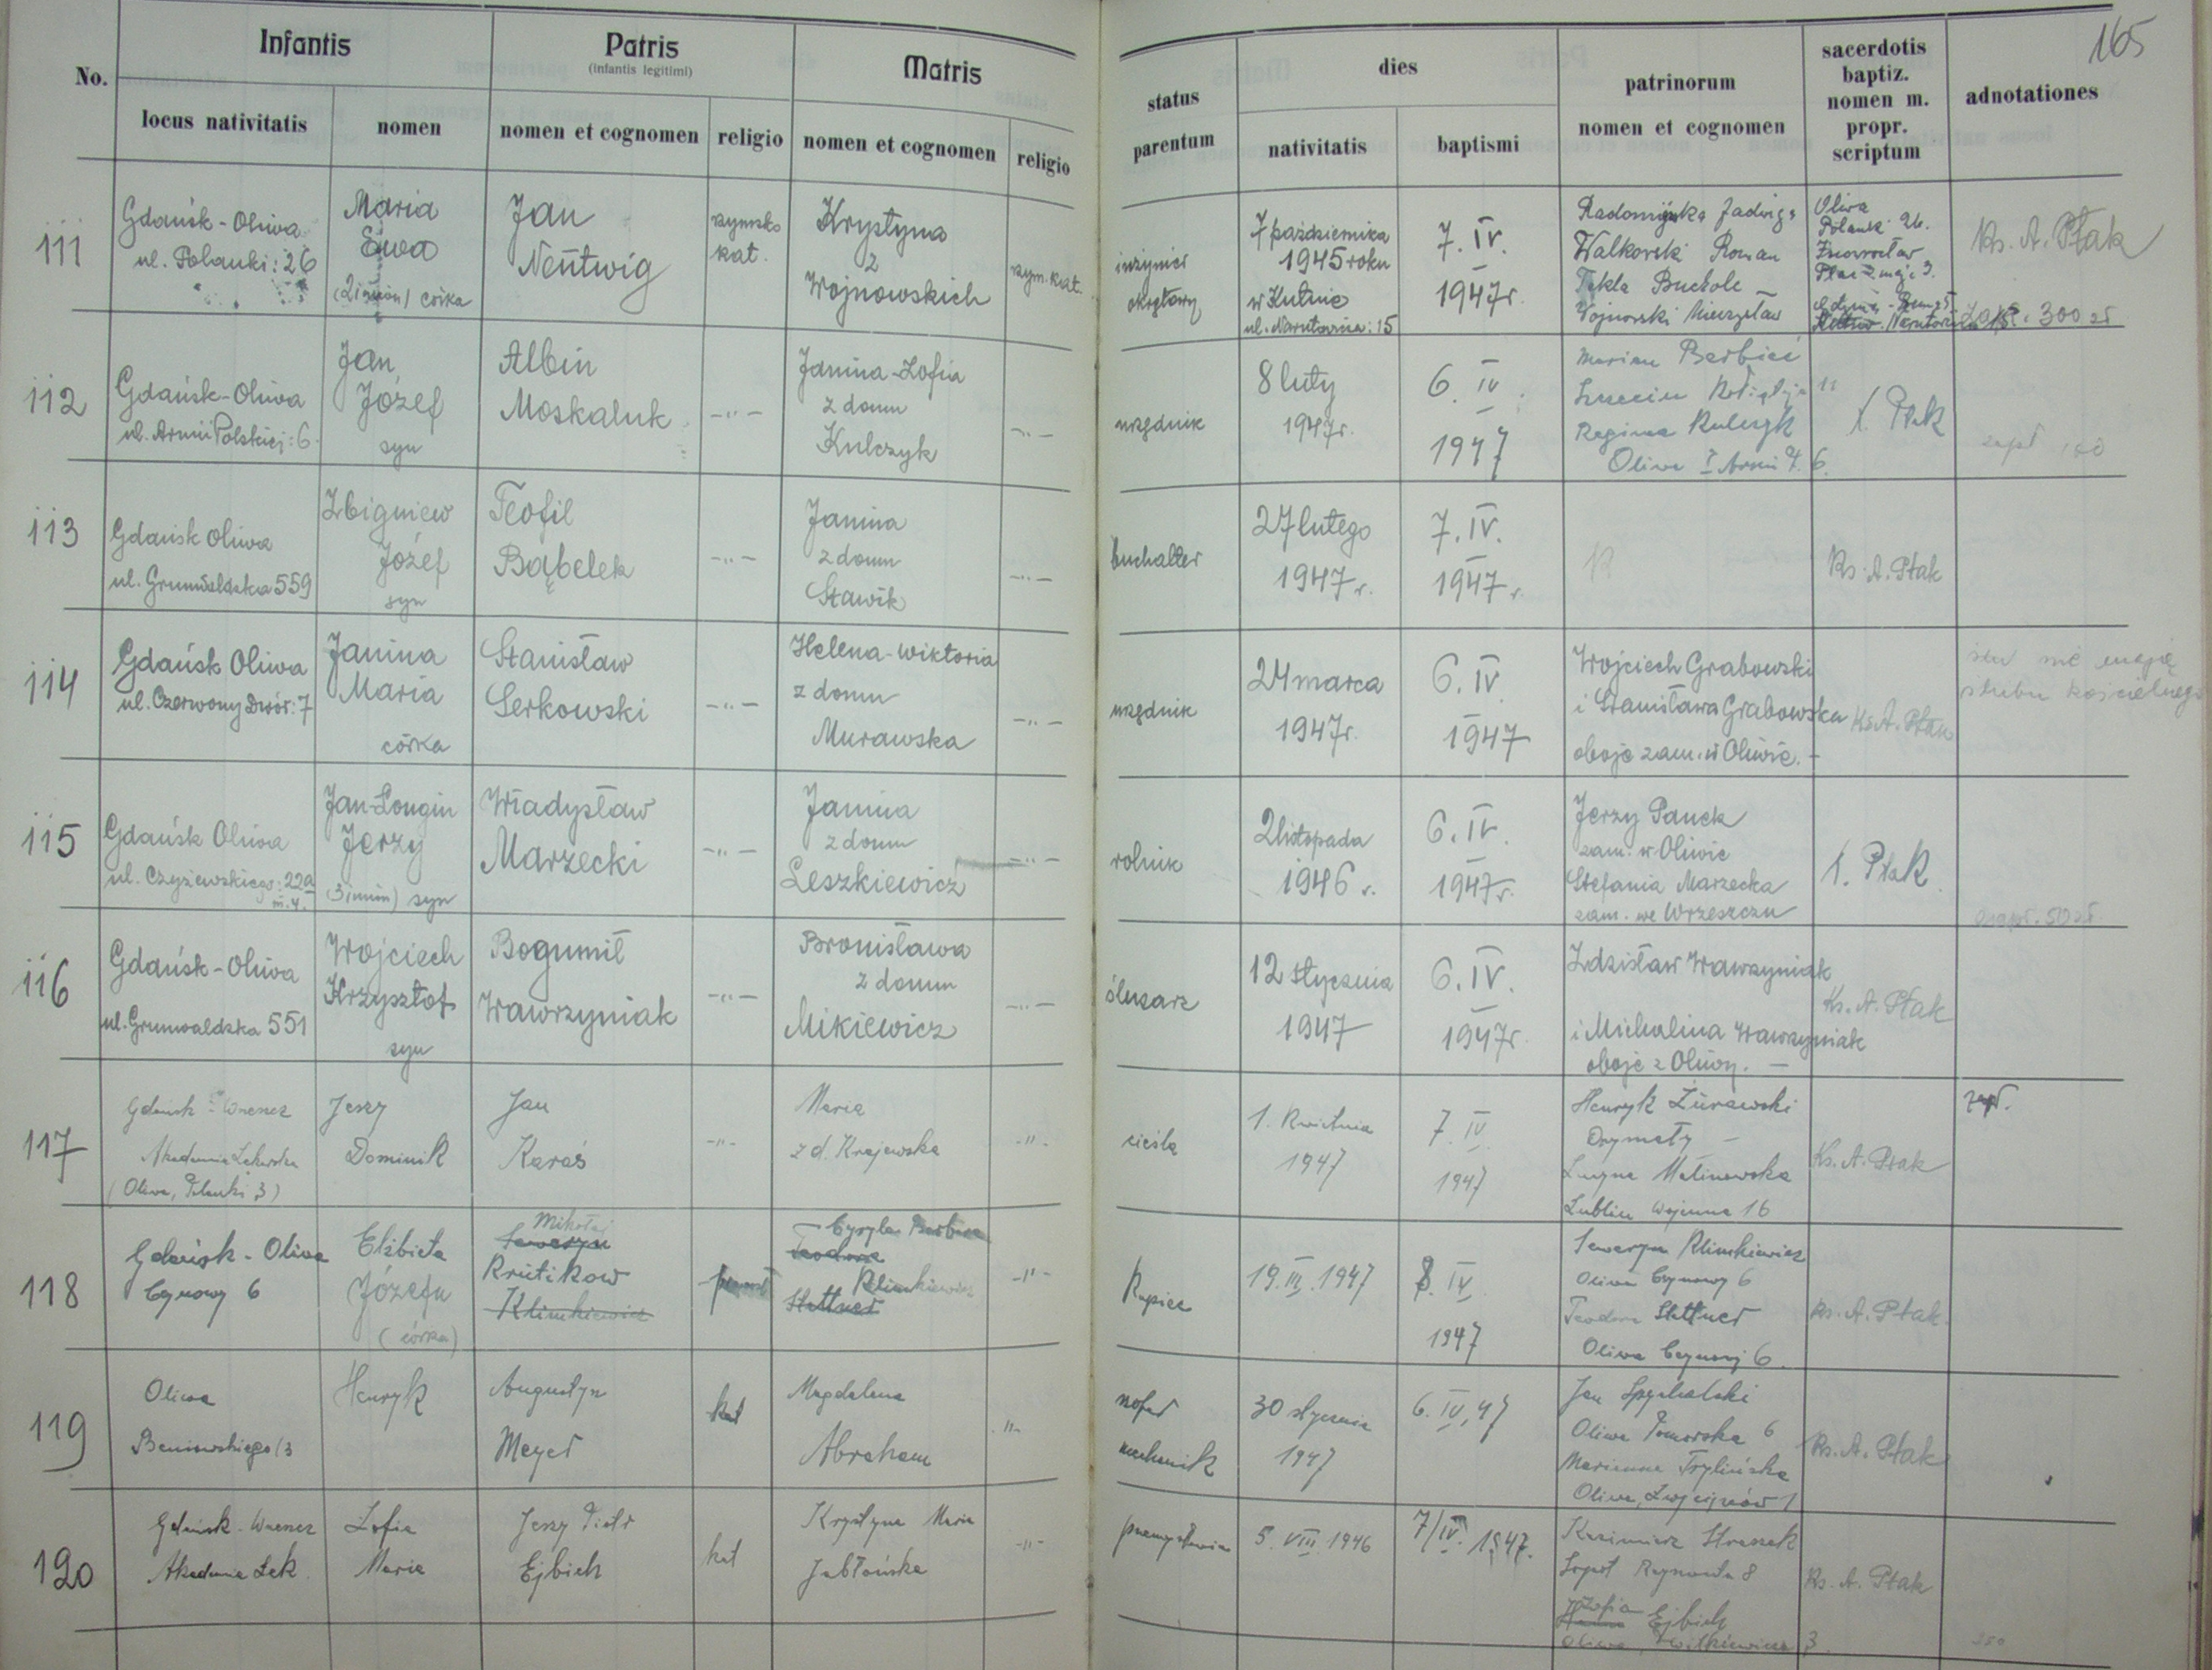 165
No.
Infantis
Patris
(infantis legitimi)
Matris
status parentum
dies
patrinorum
nomen et cognomen
sacerdotis
baptiz.
nomen m.
propr.
scriptum
adnotationes
locus nativitatis
nomen
nomen et cognomen
religio
nomen et cognomen
religio
nativitatis
baptismi
111
Gdańsk-Oliwa
ul. Polanki: 26
Maria
Ewa
(2 imion) córka
Jan
Nentwig
rzymsko
kat.
Krystyna
z
Wojnowskich
rzym. kat.
inżynier
okrętowy
7 października
1945 roku
w Kutnie
ul. Narutowicza: 15
7. IV.
1947r.
Jadwiga
Walkowski Roman
Tekla
Oliwa
Polanki 26.
Ks. A. Ptak
300 zł
112
Gdańsk-Oliwa
ul. Armii Polskiej: 6
Jan
Józef
syn
Albin
Moskaluk
-"-
Janina-Zofia
z domu
Kulczyk
-"-
urzędnik
8 luty
1947r.
6. IV.
1947
Marian
Regina Kulczyk
Oliwa
Ptak
113
Gdańsk Oliwa
ul. Grunwaldzka 559
Zbigniew
Józef
syn
Teofil
Bąbelek
-"-
Janina
z domu
Stawik
-"-
buchalter
27 lutego
1947 r.
7. IV.
1947 r.
Ks. A. Ptak
114
Gdańsk Oliwa
ul. Czerwony Dwór: 7
Janina
Maria
córka
Stanisław
Serkowski
-"-
Helena-Wiktoria
z domu
Murawska
-"-
urzędnik
24 marca
1947r.
6. IV
1947
Wojciech Grabowski
i Stanisława Grabowska
oboje zam. w Oliwie. -
Ks. A. Ptak
nie mają
ślubu kościelnego
115
Gdańsk Oliwa
ul. Czyżewskiego: 22a
m. 4.
Jan-Longin
Jerzy
(3 imion) syn
Władysław
Marzecki
-"-
Janina
z domu
Leszkiewicz
-"-
rolnik
2 listopada
1946 r.
6. IV.
1947r.
Jerzy Panek
zam. w Oliwie
Stefania Marzecka
zam. we Wrzeszczu
Ptak
116
Gdańsk-Oliwa
ul. Grunwaldzka 551
Wojciech
Krzysztof
syn
Bogumił
Wawrzyniak
-"-
Bronisława
z domu
Mikiewicz
-"-
ślusarz
12 stycznia
1947
6. IV.
1947r.
Zdzisław Wawrzyniak
i Michalina Wawrzyniak
oboje z Oliwy. -
Ks. A. Ptak
117
Gdańsk-Wrzeszcz
Akademia Lekarska
(Oliwa, Polanki 3)
Jerzy
Dominik
Jan
Karaś
-"-
Maria
z d. Krajewska
-"-
cieśla
1. Kwietnia
1947
7. IV
1947
Henryk Żurawski
Malinowska
Lublin 16
Ks. A. Ptak
zapł.
118
Gdańsk-Oliwa
Cynowy 6
Elżbieta
Józefa
(córka)
Mikołaj
Seweryn
Krutikow
Klimkiewicz
Cyryla Barbara
Teodora
Klimkiewicz
Stettner
-"-
Kupiec
19. III. 1947
8. IV.
1947
Seweryn Klimkiewicz
Oliwa Cynowy 6
Teodora Stettner
Oliwa Cynowy 6
Ks. A. Ptak
119
Oliwa
Beniowskiego 13
Henryk
Augustyn
Meyer
kat
Magdalena
Abraham
-"-
szofer
mechanik
30 stycznia
1947
6. IV. 47
Jan Spychalski
Oliwa Pomorska 6
Marianna
Oliwa,
Ks. A. Ptak
120
Gdańsk-Wrzeszcz
Akademia Lek.
Zofia
Maria
Jerzy Piotr
Ejbich
kat
Krystyna Maria
Jabłońska
-"-
przemysłowiec
5. VIII. 1946
7/IV. 1947.
Kazimierz
Sopot 8
Zofia Ejbich
Oliwa,
Ks. A. Ptak